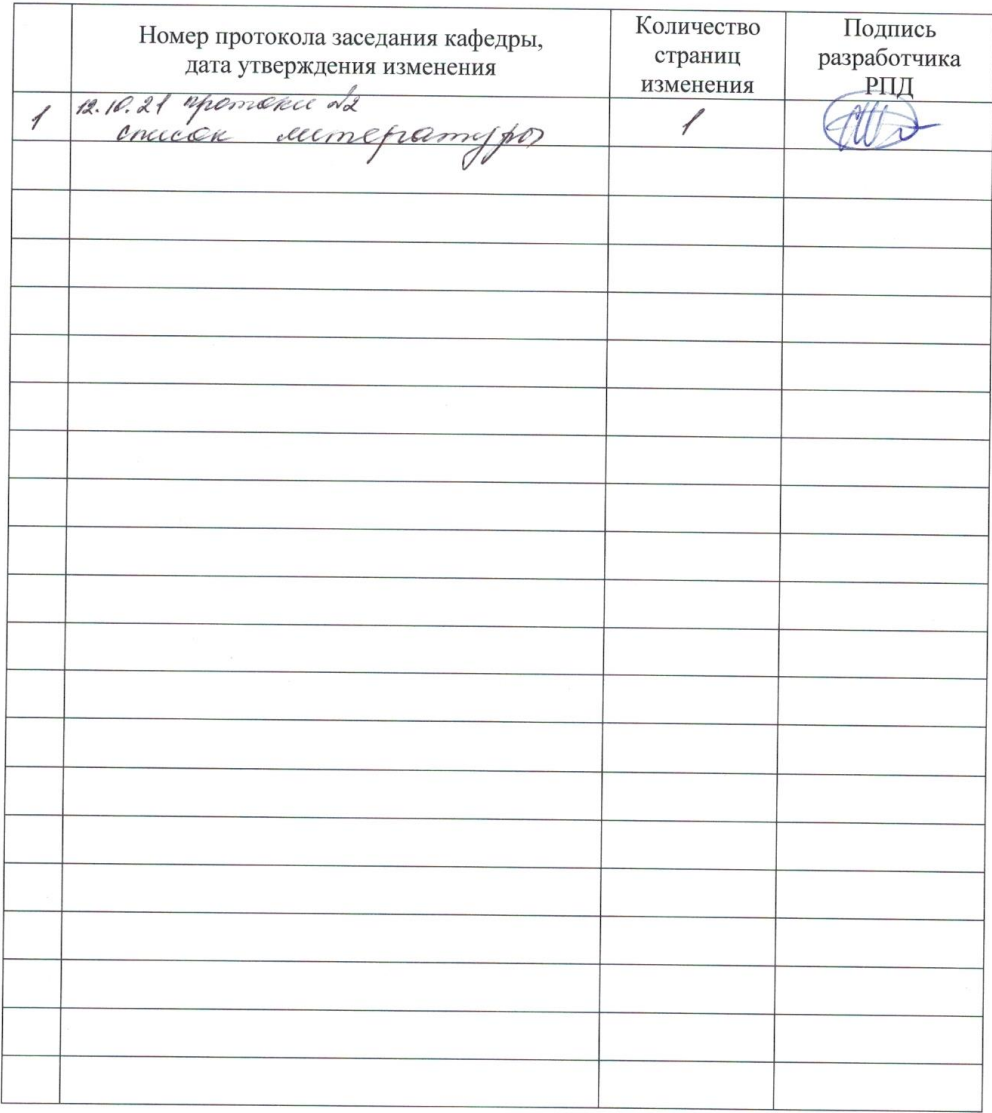 Номер протокола заседания кафедры,
дата утверждения изменения
Количество
страниц
изменения
Подпись
разработчика
РПД
1
12.10.21 протокол №2
список литературы
1